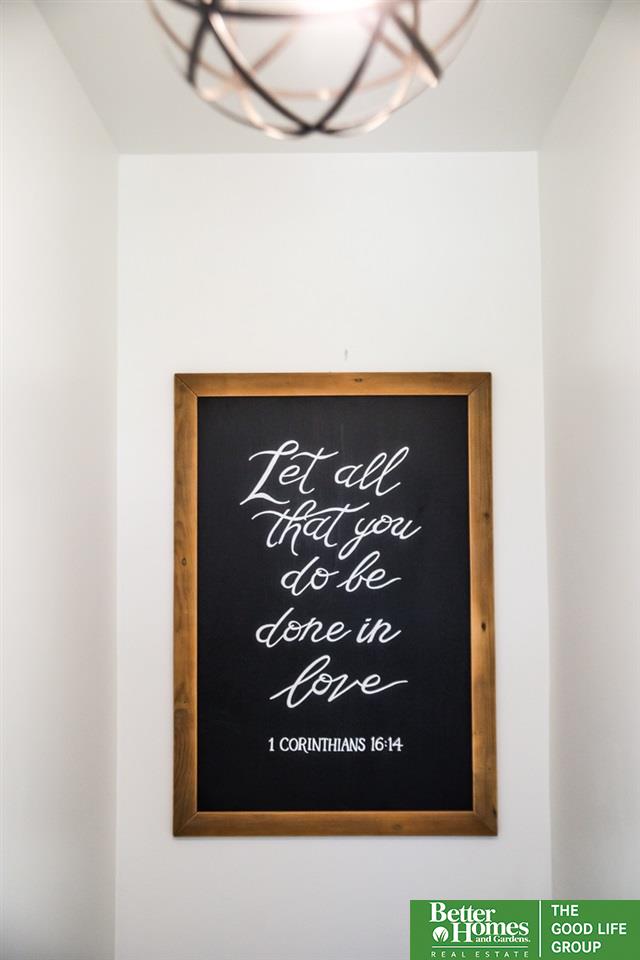 Let all
that you
do be
done in
love
1 CORINTHIANS 16:14
Better
Homes
and Gardens.
REAL ESTATE
THE
GOOD LIFE
GROUP